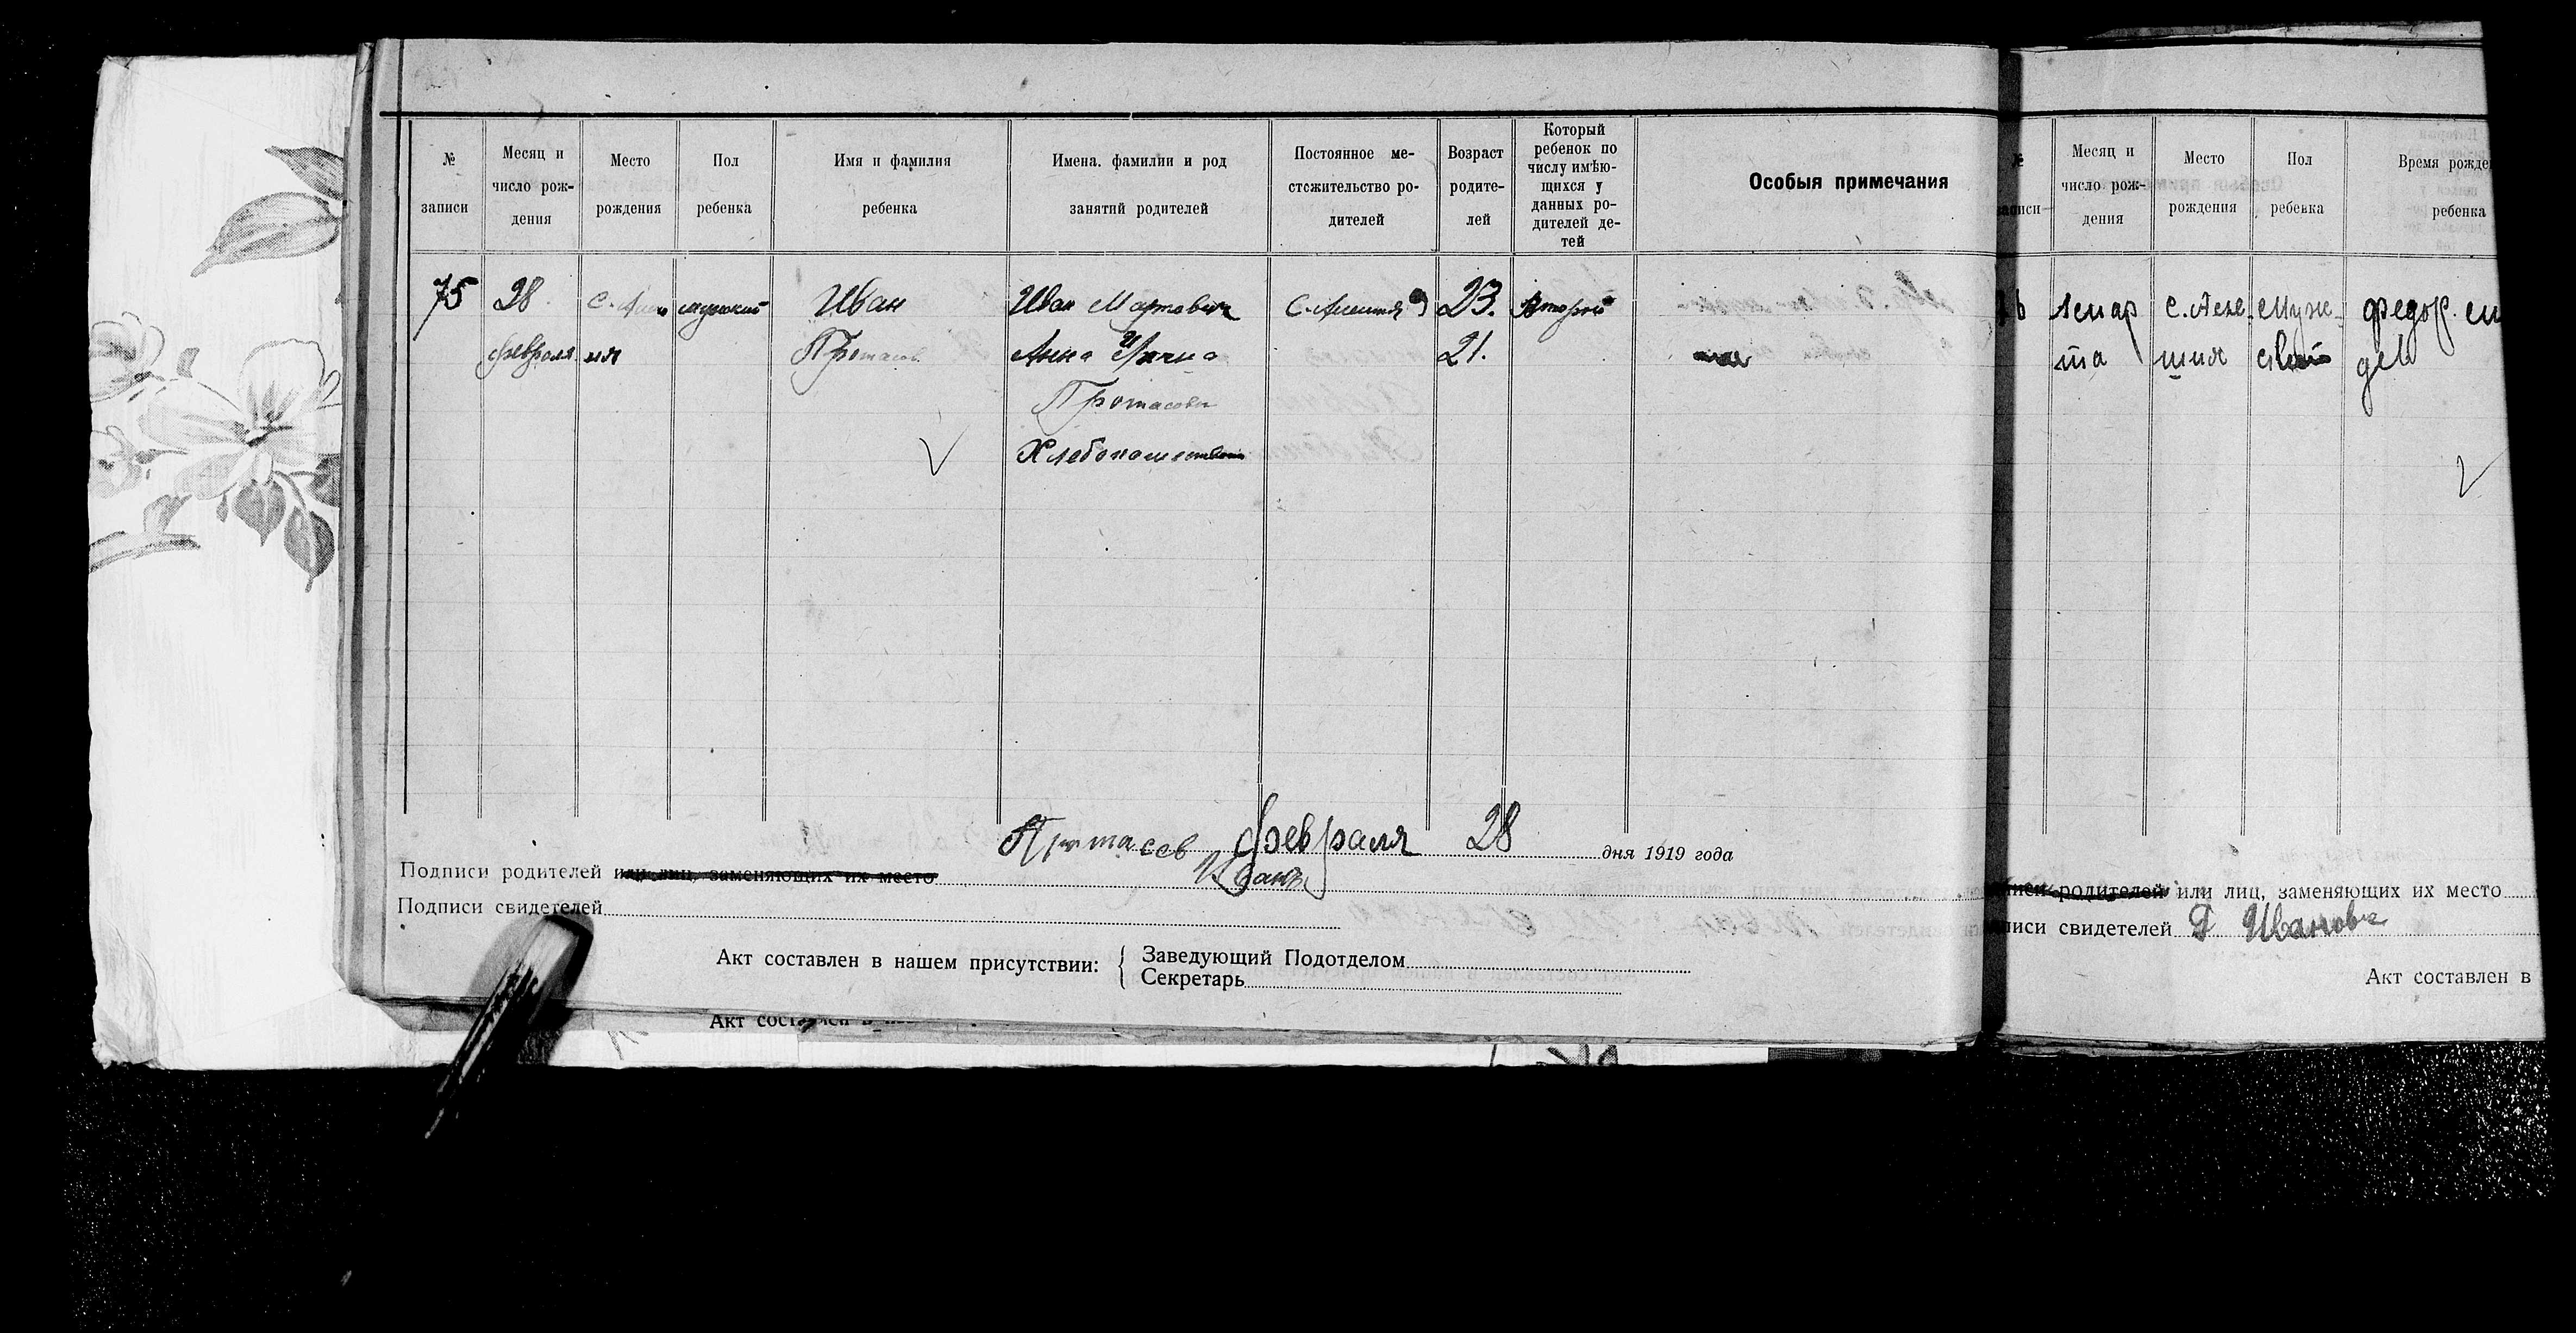 № записи
Месяц и число рождения
Место рождения
Пол ребенка
Имя и фамилия ребенка
Имена. фамилии и род занятий родителей
Постоянное местожительство родителей
Возраст родителей
Который ребенок по числу имѣющихся у данных родителей детей
Особыя примечания
75
28 февраля
мужской
Иван
Иван
Анна
Протасовы
Хлебопашество
23.
21.
Второй
Протасов февраля 28 дня 1919 года
Подписи родителей или лиц, заменяющих их место Иванъ
Подписи свидетелей
Акт составлен в нашем присутствии: { Заведующий Подотделом
Секретарь
Акт
№
записи
Месяц и число рождения
Место рождения
Пол ребенка
Время рожде
ребенка
родителей или лиц, заменяющих их место
писи свидетелей Иванова
Акт составлен в